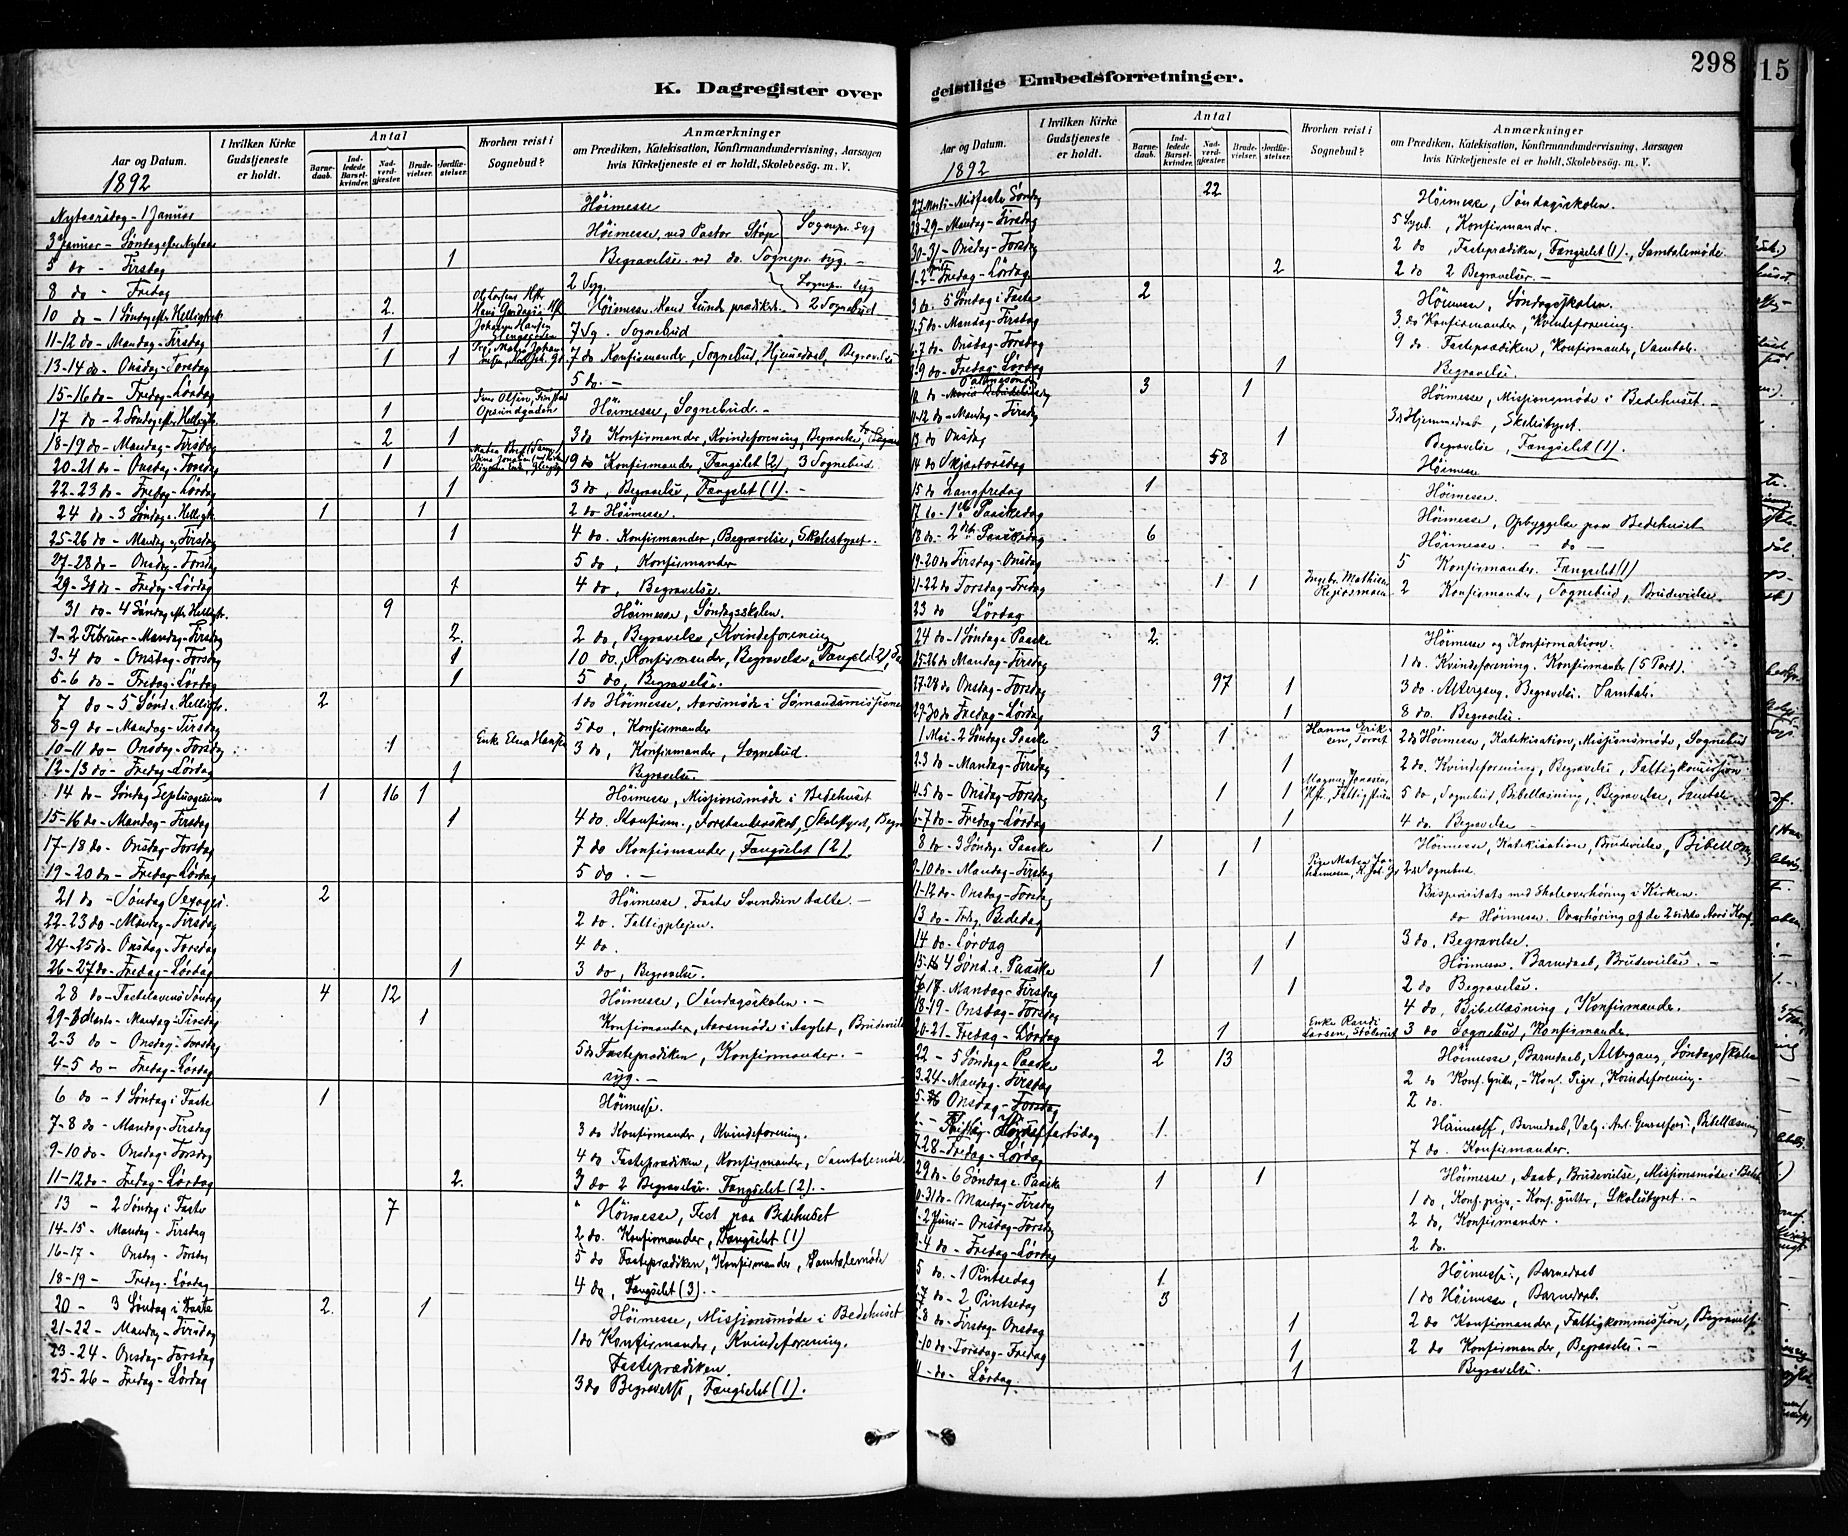 298
15
K. Dagregister over
Aar og Datum.
I hvilken Kirke Gudstjeneste er holdt.
Antal
Barnedaab.
Indledede Barselkvinder.
Nadverdgjæster.
Brudevielser.
Jordfæstelser.
Hvorhen reist i Sognebud?
Anmærkninger
om Prædiken, Katekisation, Konfirmandundervisning, Aarsagen
hvis Kirketjeneste ei er holdt, Skolebesøg. m. V.
1892
Nytaarsdag - 1 Januar Høimesse
3 Januar - Søndag efter Nytaar Høimesse, ved Pastor Støp Sognepr. syg
5 do - Tirsdag 1 Begravelse ved do. Sognepr. syg. -
8 do - Fredag 2 Syg. Sognepr. syg
10 do - 1 Søndag efter Helligtrek. 2. Høimesse. Kand. Lund prædikt. 2 Sognebud
11-12 do - Mandag - Tirsdag 1 Johan Hansen 7 Sg. Sognebud
13-14 do - Onsdag - Torsdag 1 1 7 do Konfirmander, Sognebud, Hjemedaab, Begravelse
15-16 do - Fredag - Lørdag 5 do. -
17 do - 2 Søndag efter Helligtrek. 1 Iver Olsen Høimesse, Sognebud. -
18-19 do - Mandag - Tirsdag 2 1 3 do Konfirmander, Kvindeforening, Begravelse,
20-21 do - Onsdag - Torsdag 1 9 do Konfirmander, Fængslet (2), 3 Sognebud.
22-23 do - Fredag - Lørdag 1 3 do, Begravelse, Fængslet (1). -
24 do - 3 Søndag e. Helligtr. 1 1 2 do Høimesse.
25-26 do - Mandag og Tirsdag 1 4 do. Konfirmander, Begravelse, Skolestyret.
27-28 do - Onsdag - Torsdag 5 do, Konfirmander
29-30 do - Fredag - Lørdag 1 4 do, Begravelse.
31 do - 4 Søndag efter Helligtr. 9 Høimesse, Søndagsskolen.
1-2 Februar - Mandag - Tirsdag 2. 2 do, Begravelse, Kvindeforening
3-4 do - Onsdag - Torsdag 1 10 do., Konfirmander, Begravelse, Fængslet (2),
5-6 do - Fredag - Lørdag 1 5 do, Begravelse.
7 do - 5 Sønd. e. Helligtr. 2 1 do Høimesse, Aarsmøde i Sømandsmissionen
8-9 do - Mandag - Tirsdag 5 do, Konfirmander
10-11 do - Onsdag - Torsdag 1 Enke Elena Hansen 3 do, Konfirmander, Sognebud.
12-13 do - Fredag - Lørdag 1 Begravelse.
14 do - Søndag Septuagesima 1 16 1 Høimesse, Missionsmøde i Bedehuset
15-16 do - Mandag - Tirsdag 1 4 do. Konfirm., Forstanderskab, Skolestyret, Begr
17-18 do - Onsdag - Torsdag 7 do Konfirmander, Fængslet (2).
19-20 do - Fredag - Lørdag 5 do. -
21 do - Søndag Sexages. 2 Høimesse. Pastor Svendsen talte. -
22-23 do - Mandag - Tirsdag 2 do. Fattigplejen.
24-25 do - Onsdag - Torsdag 4 do.
26-27 do - Fredag - Lørdag 1 3 do, Begravelse.
28 do - Fastelavens Søndag 4 12 Høimesse, Søndagsskolen. -
29-1 Marts - Mandag - Tirsdag 1 Konfirmander, Aarsmøde i Asylet, Brudevielse
2-3 do - Onsdag - Torsdag 5 do Fasteprædiken, Konfirmander. -
4-5 do - Fredag - Lørdag syg. -
6 do - 1 Søndag i Faste 1 Høimesse.
7-8 do - Mandag - Tirsdag 3 do Konfirmander, Kvindeforening.
9-10 do - Onsdag - Torsdag 4 do Fasteprædiken, Konfirmander, Samtalemøde
11-12 do - Fredag - Lørdag 2. 3 do 2 Begravelser. Fængslet (2). -
13 - 2 Søndag i Faste 7 Høimesse, Fest paa Bedehuset
14-15 - Mandag - Tirsdag 2 do. Konfirmander, Fængslet (1)
16-17 - Onsdag - Torsdag 5 do Fasteprædiken, Konfirmander, Samtalemøde
18-19 - Fredag - Lørdag 4 do, Fængslet (3). -
20 - 3 Søndag i Faste 2. 1 Høimesse, Missionsmøde i Bedehuset
21-22 - Mandag - Tirsdag 1 do Konfirmander, Kvindeforening.
23-24 - Onsdag - Torsdag Fasteprædiken
25-26 - Fredag - Lørdag 3 do Begravelse, Fængslet (1).
geistlige Embedsforretninger.
Aar og Datum.
I hvilken Kirke Gudstjeneste er holdt.
Antal
Barnedaab.
Indledede Barselkvinder.
Nadverdgjæster.
Brudevielser.
Jordfæstelser.
Hvorhen reist i Sognebud?
Anmærkninger
om Prædiken, Katekisation, Konfirmandundervisning, Aarsagen
hvis Kirketjeneste ei er holdt, Skolebesøg. m. V.
1892
27 Marts - Midfaste Søndag 22 Høimesse, Søndagsskolen.
28-29 - Mandag - Tirsdag 5 Sygeb., Konfirmander.
30-31 - Onsdag - Torsdag 2 do, Fasteprædiken, Fængslet (1), Samtalemøde
1-2 April Fredag - Lørdag 2 2 do 2 Begravelser. -
3 do 5 Søndag i Faste 2 Høimesse, Søndagsskolen.
4-5 do. - Mandag - Tirsdag 3 do Konfirmander, Kvindeforening.
6-7 do. - Onsdag - Torsdag 9 do. Fasteprædiken, Konfirmander, Samtale.
8-9 do - Fredag - Lørdag 1 Begravelse.
10 do - Palmesøndag 3 1 Høimesse, Missionsmøde i Bedehuset. -
11-12 do - Mandag - Tirsdag 3 do Hjemmedaab, Skolestyret.
13 do Onsdag 1 Begravelse, Fængslet (1).
14 do Skjærtorsdag 58 Høimesse
15 do Langfredag 1 Høimesse.
17 do - 1ste Paaskedag Høimesse, Opbyggelse paa Bedehuset
18 do - 2den Paaskedag 6 Høimesse. - do -
19-20 do Tirsdag - Onsdag 5 Konfirmander. Fængslet (1)
21-22 do Torsdag - Fredag 1 1 Ingebr. Mathisen 2 Konfirmander, Sognebud, Brudevielse.
23 do Lørdag
24 do - 1 Søndag e. Paaske 2. Høimesse og Konfirmation.
25-26 do Mandag - Tirsdag 1 do. Kvindeforening. Konfirmander (5 Part).
27-28 do Onsdag - Torsdag 97 1 3 do. Altergang. Begravelse. Samtale.
29-30 do Fredag - Lørdag 1 8 do. Begravelse.
1 Mai - 2 Søndag e. Paaske 3 1 Hanna Eriksen, Torvet 2 do Høimesse, Katekisation, Missionsmøde, Sognebud
2-3 do - Mandag - Tirsdag 1 2 do. Kvindeforening, Begravelse, Fattigkomission
4-5 do - Onsdag - Torsdag 1 1 5 do, Sognebud, Bibellæsning, Begravelse, Samtale
6-7 do - Fredag - Lørdag 1 4 do. Begravelse -
8 do - 3 Søndag e. Paaske 1 1 Høimesse, Katekisation, Brudevielse, Bibellæsning
9-10 do - Mandag - Tirsdag 1 Pige Mathea 2 do Sognebud.
11-12 do - Onsdag - Torsdag Bispevisitats med Skoleoverhøring i Kirken.
13 do - Fredag Bededag do Høimesse. Overhøring af de 2 sidste Aars Konf.
14 do - Lørdag 1 3 do, Begravelse.
15 4 Sønd. e. Paaske 1 1 Høimesse. Barnedaab, Brudevielse. -
16-17 - Mandag - Tirsdag 1 2 do Begravelse.
18-19 - Onsdag - Torsdag 4 do, Bibellæsning, Konfirmander.
20-21 - Fredag - Lørdag 1 Enke Randi Larsen, 3 do Sognebud, Konfirmander.
22 - 5 Søndag e. Paaske 2 13 Høimesse, Barnedaab, Altergang, Søndagsskolen
23-24 - Mandag - Tirsdag 2 do Konf. Gutter, - Konf. Piger, Kvindeforening.
25 Onsdag - Torsdag 2 do.
Himmelfartsdag 1. Høimesse, Barnedaab, Bibellæsning
27-28 - Fredag - Lørdag 7 do. Konfirmander.
29 do - 6 Søndag e. Paaske 1 1 Høimesse, Daab, Brudevielse, Missionsmøde i Bedeh
30-31 do - Mandag - Tirsdag 1 do, Konf. piger, - Konf. gutter, Skolestyret. -
1-2 Juni - Onsdag - Torsdag 2 do, Konfirmander.
3-4 do - Fredag - Lørdag 2 do.
5 do. - 1 Pintsedag 1. Høimesse, Barnedaab
2 Pintsedag 3 1 do Høimesse, Barnedaab.
7-8 do - Tirsdag - Onsdag 1 2 do Konfirmander, Fattigkommission, Begravelse
9-10 do - Torsdag - Fredag 1 2 do Konfirmander, Begravelse. -
11 do - Lørdag. 1 Begravelse.